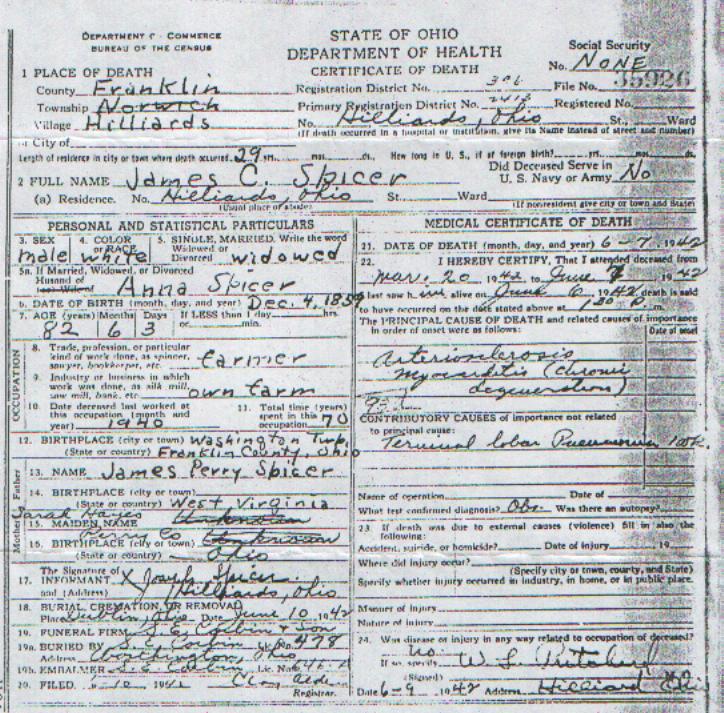 DEPARTMENT OF COMMERCE
BUREAU OF THE CENSUS
STATE OF OHIO
DEPARTMENT OF HEALTH
CERTIFICATE OF DEATH
Social Security
No. NONE
1 PLACE OF DEATH
County Franklin
Township Norwich
Village Hilliards
or City of
Registration District No. 396
File No. 35926
Primary Registration District No.
Registered No.
No. Hilliards, Ohio St., Ward
(If death occurred in a hospital or institution, give its Name instead of street and number)
Length of residence in city or town where death occurred. 29 yrs. mos. ds. How long in U. S., if of foreign birth? yrs. mos. ds.
2 FULL NAME James C. Spicer
Did Deceased Serve in
U. S. Navy or Army No
(a) Residence. No. Hilliards, Ohio St. Ward
(Usual place of abode)
(If nonresident give city or town and State)
PERSONAL AND STATISTICAL PARTICULARS
3. SEX 4. COLOR or RACE 5. SINGLE, MARRIED, Write the word
Widowed or
Divorced
male white widowed
5a. If Married, Widowed, or Divorced
Husband of Anna Spicer
(or) Wife of
6. DATE OF BIRTH (month, day, and year) Dec. 4, 1859
7. AGE (years) Months Days If LESS than 1 day hrs.
or min.
82 6 3
OCCUPATION
8. Trade, profession, or particular
kind of work done, as spinner,
sawyer, bookkeeper, etc. farmer
9. Industry or business in which
work was done, as silk mill,
saw mill, bank, etc. own farm
10. Date deceased last worked at
this occupation (month and
year) 1940
11. Total time (years)
spent in this
occupation 70
12. BIRTHPLACE (city or town) Washington Twp.
(State or country) Franklin County, Ohio
Father
13. NAME James Perry Spicer
14. BIRTHPLACE (city or town)
(State or country) West Virginia
Mother
Sarah Hayes
15. MAIDEN NAME Unknown
Perry Co
16. BIRTHPLACE (city or town) Unknown
(State or country) Ohio
17. The Signature of
INFORMANT X Joseph Spicer
and (Address) Hilliards, Ohio
18. BURIAL, CREMATION, OR REMOVAL
Place Dublin, Ohio Date June 10, 1942
19. FUNERAL FIRM S. E. Corbin & Son
19a. BURIED BY S. E. Corbin Lic. No. 478
Address Ohio
19b. EMBALMER S. E. Corbin Lic. No.
20. FILED
Registrar.
MEDICAL CERTIFICATE OF DEATH
21. DATE OF DEATH (month, day, and year) 6-7 1942
22. I HEREBY CERTIFY, That I attended deceased from
Mar. 20 1942 to June 7 1942
I last saw him alive on June 6, 1942 death is said
to have occurred on the date stated above at 1:30 P. m.
The PRINCIPAL CAUSE OF DEATH and related causes of importance
in order of onset were as follows:
Date of onset
Arteriosclerosis
Myocarditis (chronic
degeneration)
CONTRIBUTORY CAUSES of importance not related
to principal cause:
Terminal lobar Pneumonia
Name of operation Date of
What test confirmed diagnosis? Obs. Was there an autopsy?
23. If death was due to external causes (violence) fill in also the
following:
Accident, suicide, or homicide? Date of injury 19
Where did injury occur?
(Specify city or town, county, and State)
Specify whether injury occurred in industry, in home, or in public place.
Manner of injury
Nature of injury
24. Was disease or injury in any way related to occupation of deceased?
no
If so, specify
(Signed) W. L.
Date 6-9 1942 Address Hilliard Ohio